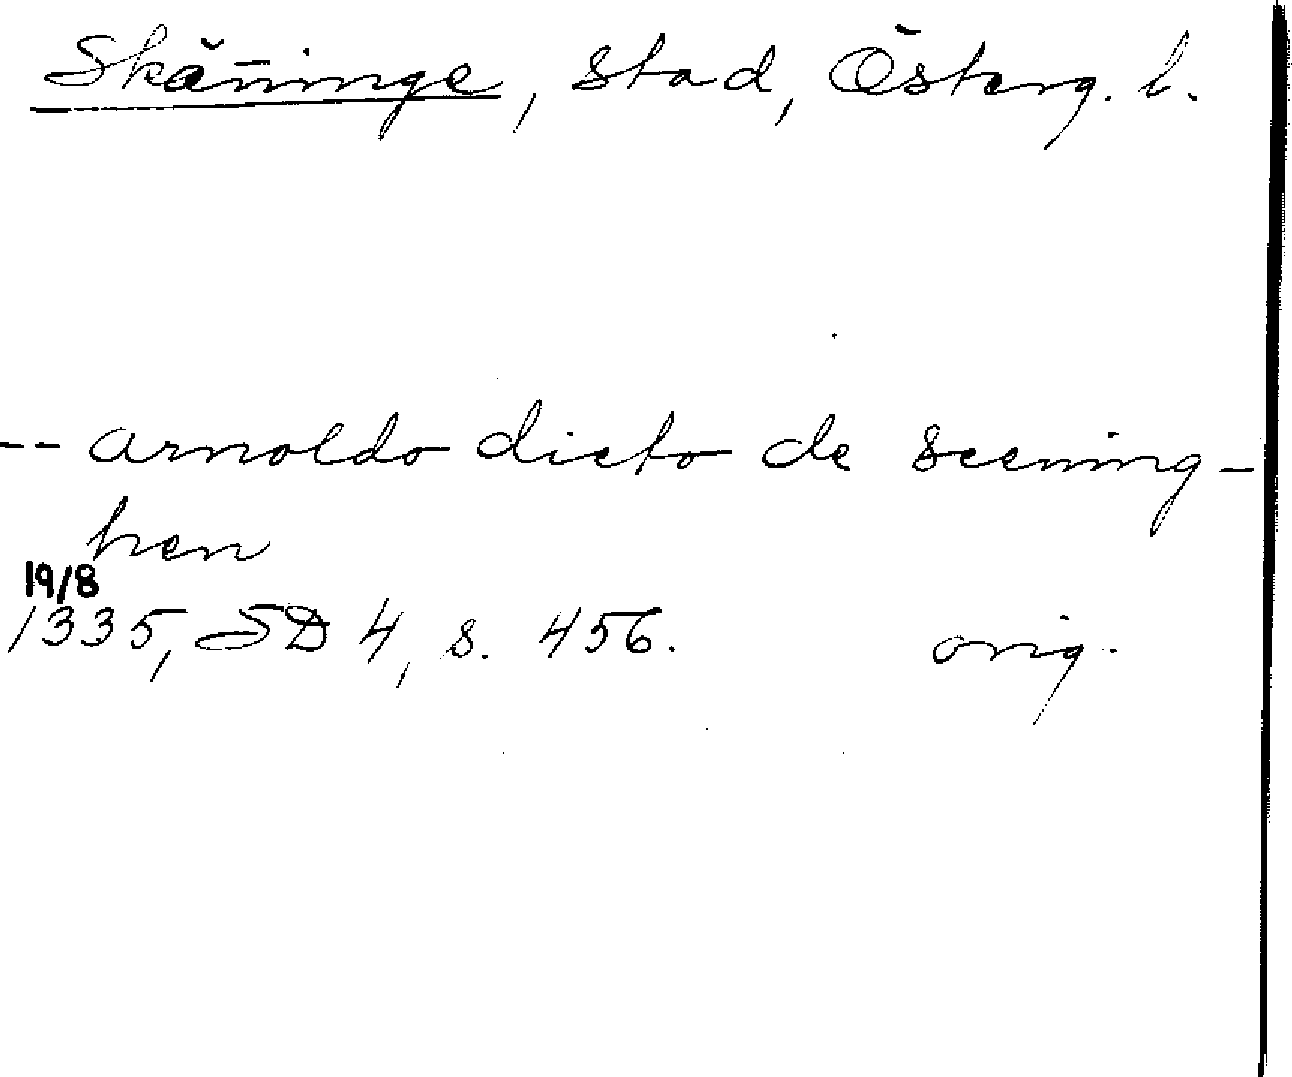 Skänninge, stad, Österg. l.
-- arnoldo dicto de scening-
hen
19/8
1335, SD 4, s. 456. orig.